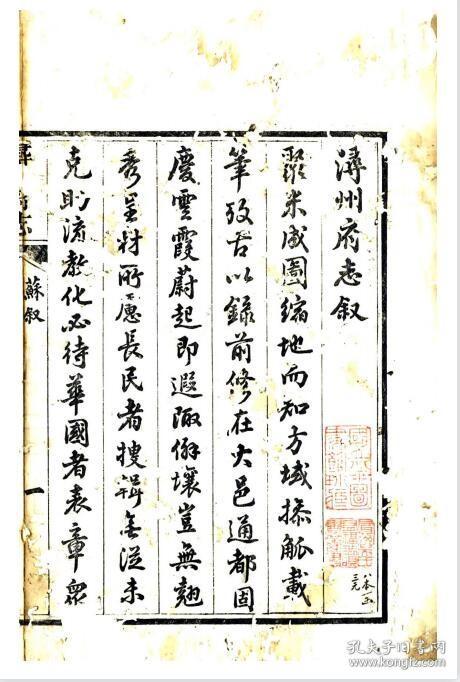 潯州府志叙
聚米成圖縮地而知方域操觚載
筆攷古以錄前修在大邑通都固
慶雲霞蔚起即遐陬僻壤豈無翹
秀呈材所慮長民者搜輯無從未
克貽流教化必待華國者表章眾
蘇叙
一
孔夫子旧书网
www.kongfz.com